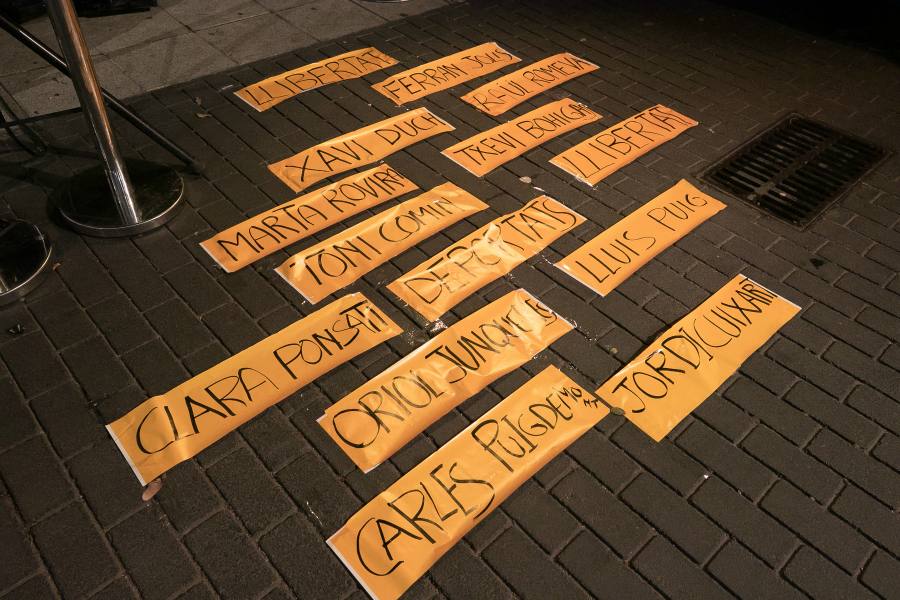 LLIBERTAT
FERRAN JOLIS
RAÜL ROMEVA
XAVI DUCH
TXEVI BOHIGAS
LLIBERTAT
MARTA ROVIRA
TONI COMIN
DEPORTATS
LLUIS PUIG
CLARA PONSATI
ORIOL JUNQUERES
JORDI CUIXART
CARLES PUIGDEMONT